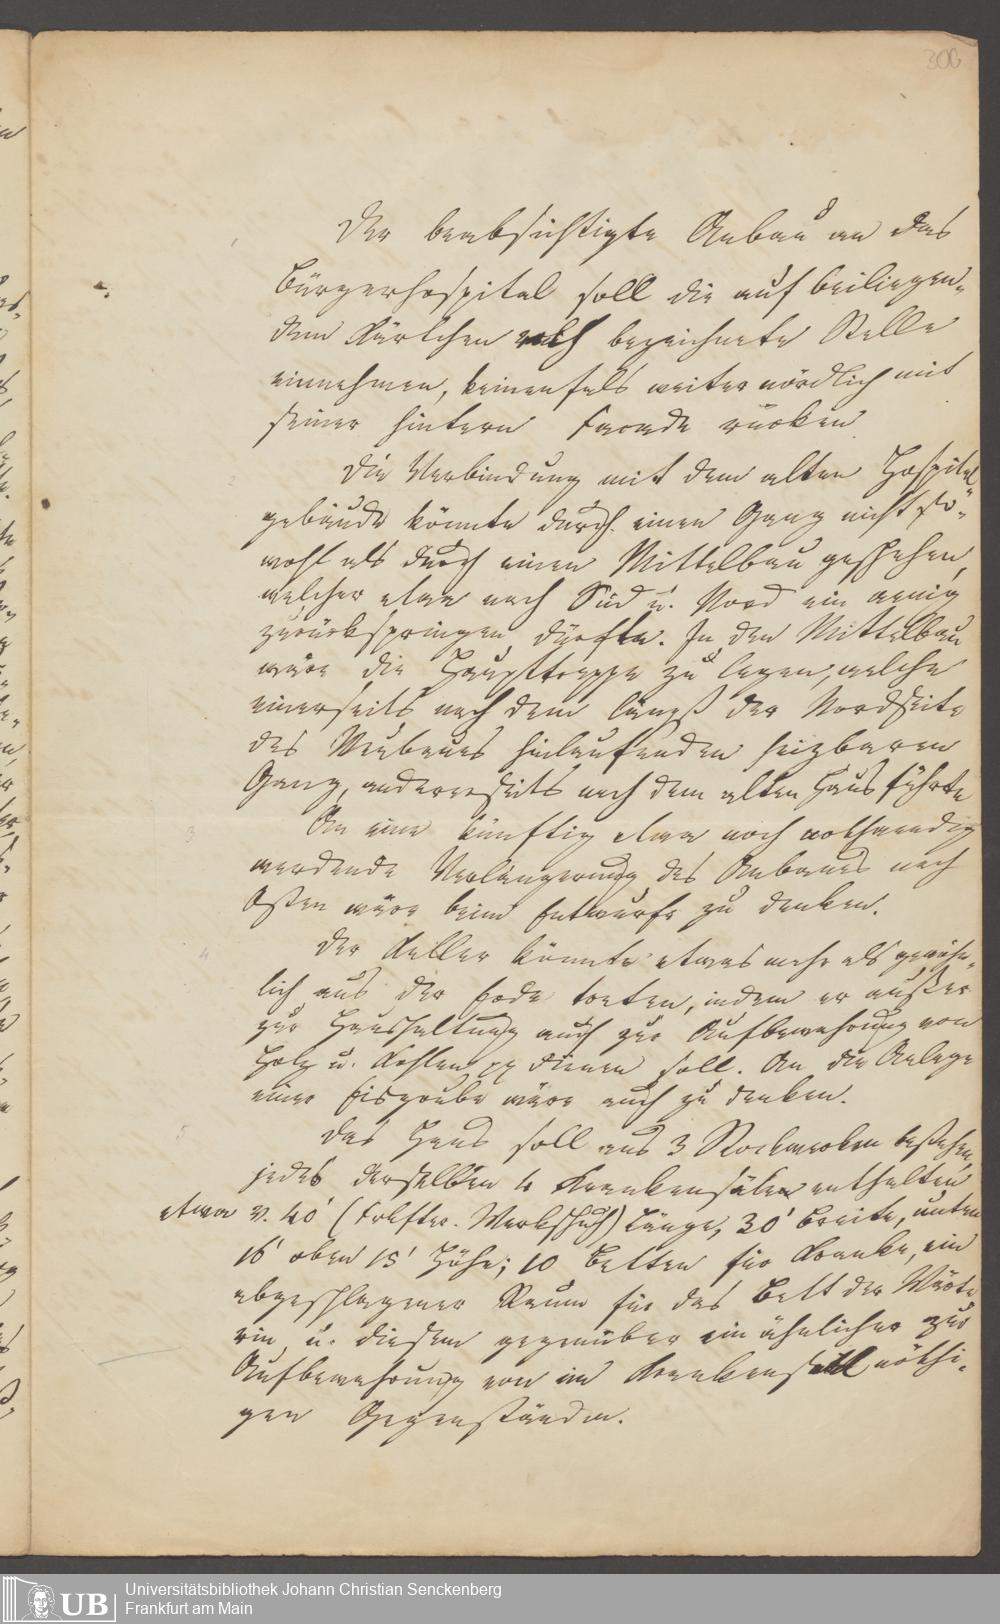 306
1
Der beabsichtigte Anbau an das
Bürgerhospital soll die auf beiliegen-
dem Kärtchen roth bezeichnete Stelle
einnehmen, keinenfals weiter nördlich mit
seiner hintern Facade rücken
2
Die Verbindung mit dem alten Hospital
gebäude könnte durch einen Gang nicht so-
wohl als durch einen Mittelbau geschehen,
welcher etwa nach Süd u. Nord ein wenig
zurückspringen dürfte. In den Mittelbau
wäre die Haupttreppe zu legen, welche
einerseits nach dem längß der Nordseite
des Neubaues hinlaufenden heizbaren
Gang, andererseits nach dem alten Haus führte
3
An eine künftig etwa noch nothwendig
werdende Verlängerung des Anbaues nach
Osten wäre beim Entwurfe zu denken.
4
Der Keller könnte etwas mehr als gewöhn-
lich aus der Erde treten, indem er außer
zur Haushaltung auch zur Aufbewahrung von
Holz u. Kohlen pp dienen soll. An die Anlage
einer Eisgrube wäre auch zu denken.
5
Das Haus soll aus 3 Stockwerken bestehen,
jedes derselben 4 Krankensäle enthalten
etwa v. 40' (Frkfter. Werkschuh) Länge, 30' Breite, unten
16' oben 15' Höhe; 10 Betten für Kranke, ein
abgeschlagener Raum für das Bett der Wärte
rin u. diesem gegenüber ein ähnlicher zur
Aufbewahrung von im Krankensaal nöthi-
gen Gegenständen.
UB Universitätsbibliothek Johann Christian Senckenberg
Frankfurt am Main